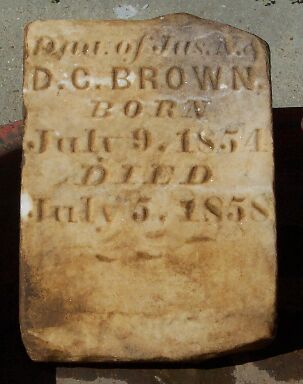 of Jas. N. &
D. C. BROWN.
BORN
July 9. 1854
DIED
July 5. 1858